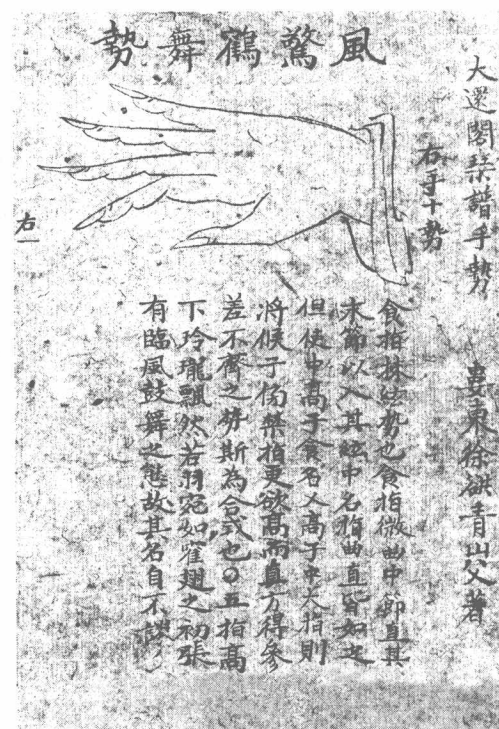 大還閣琴譜手勢 婁東徐谼青山父著
右手十勢
風驚鶴舞勢
食指抹絃勢也食指微曲中節直其
末節以入其絃中名指曲直皆如之
但使中高于食名又高于中大指則
將候于傍禁指更欲高而直方得參
差不齊之勢斯為合式也〇五指高
下玲瓏飄然若羽宛如寉翅之初張
有臨風鼓舞之態故其名自不謬
右一